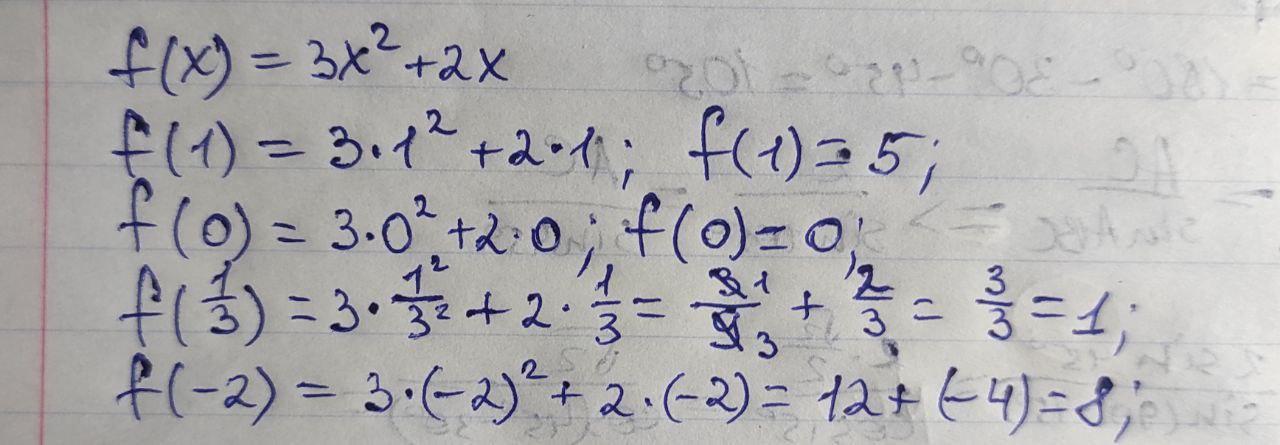 f(x) = 3x² + 2x
f(1) = 3·1² + 2·1; f(1) = 5;
f(0) = 3·0² + 2·0; f(0) = 0;
f(1/3) = 3 · 1²/3² + 2 · 1/3 = 3 1/9 3 + 2/3 = 3/3 = 1;
f(-2) = 3·(-2)² + 2·(-2) = 12 + (-4) = 8;